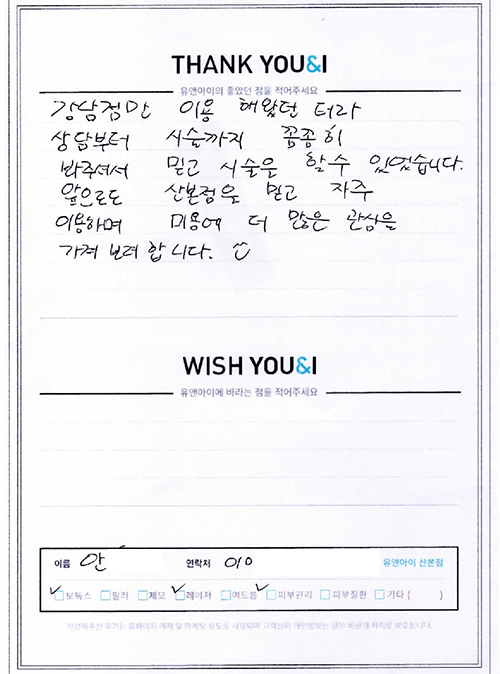 THANK YOU&I
유앤아이의 좋았던 점을 적어주세요
강남점만 이용 해왔던 터라
상담부터 시술까지 꼼꼼히
봐주셔서 믿고 시술을 할수 있었습니다.
앞으로도 산본점을 믿고 자주
이용하며 미용에 더 많은 관심을
가져 보려 합니다.
WISH YOU&I
유앤아이에 바라는 점을 적어주세요
이름 안 연락처 010 유앤아이 산본점
보톡스 필러 제모 레이저 여드름 피부관리 피부질환 기타 ( )
작성해주신 후기는 홈페이지 게재 및 마케팅 용도로 사용되며 고객님의 개인정보는 일부 비공개 처리로 보호됩니다.